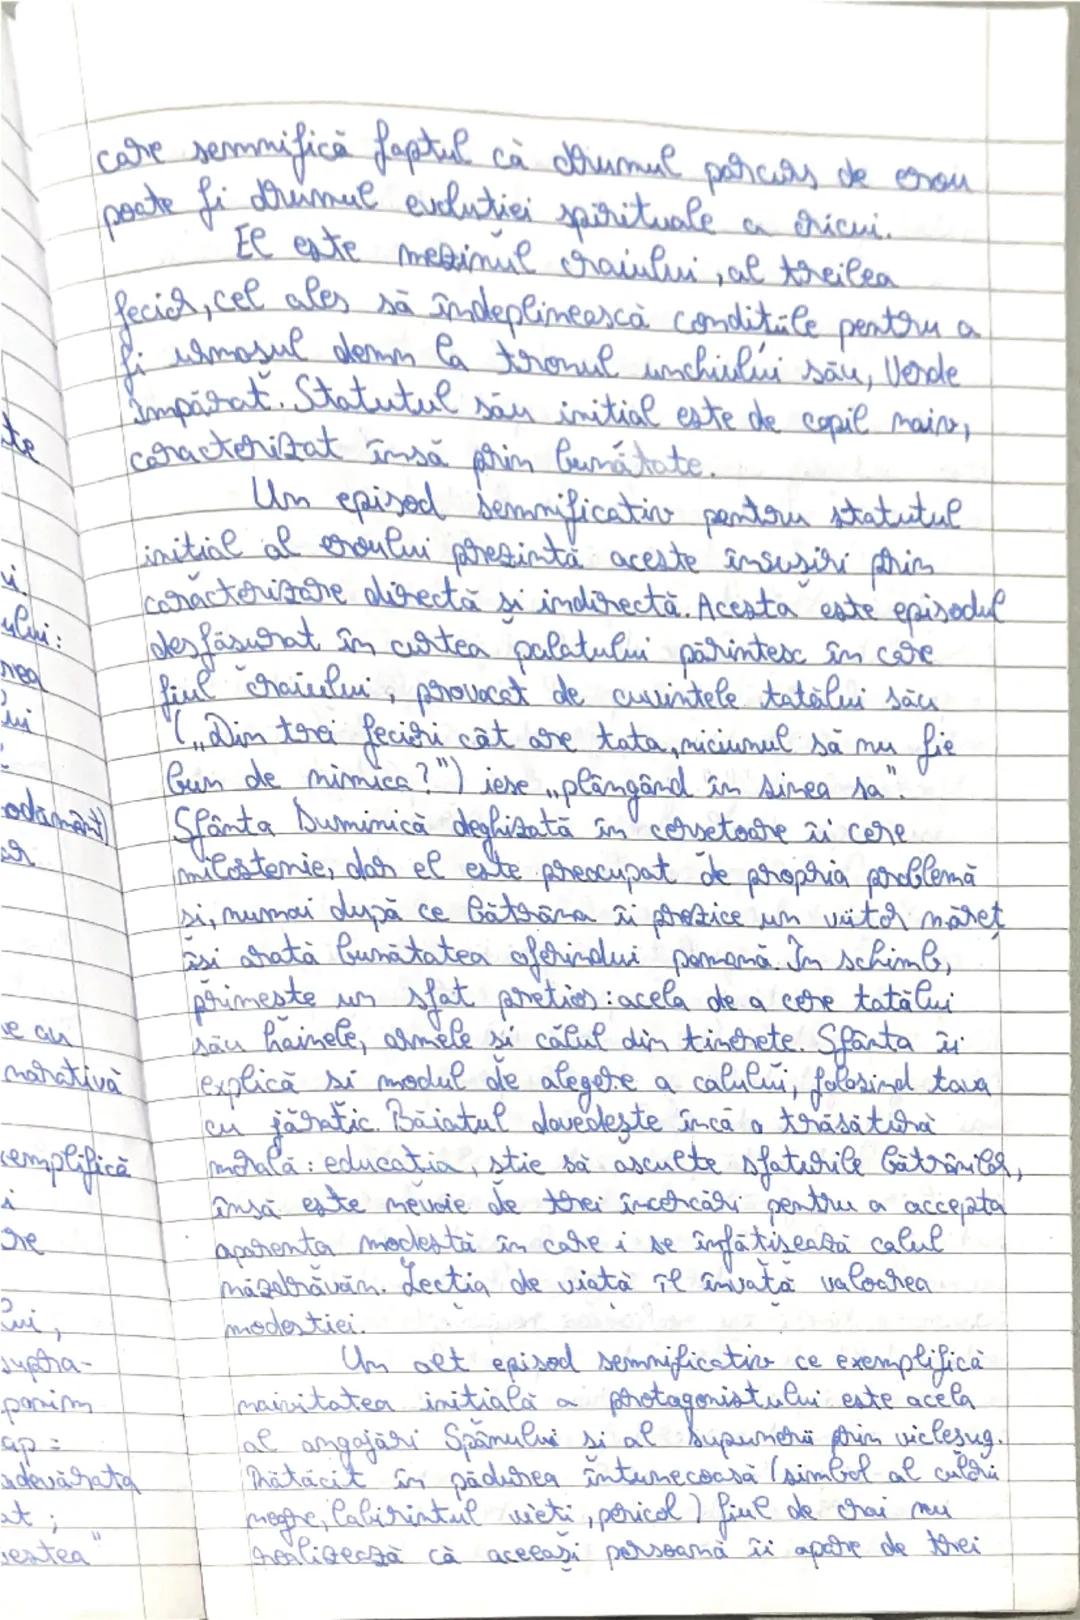 care semnifică faptul că drumul parcurs de erou
poate fi drumul evoluției spirituale a oricui.
El este mezinul craiului, al treilea
fecior, cel ales să îndeplinească condițiile pentru a
fi urmașul demn la tronul unchiului său, Verde
Împărat. Statutul său inițial este de copil naiv,
caracterizat însă prin bunătate.
Un episod semnificativ pentru statutul
inițial al eroului prezintă aceste însușiri prin
caracterizare directă și indirectă. Acesta este episodul
desfășurat în curtea palatului părintesc în care
fiul craiului, provocat de cuvintele tatălui său
(„Din trei feciori cât are tata, niciunul să nu fie
bun de nimica?") iese „plângând în sinea sa".
Sfânta Duminică deghizată în cerșetoare îi cere
milostenie, dar el este preocupat de propria problemă
și, numai după ce bătrâna îi prezice un viitor măreț
își arată bunătatea oferindui pomană. În schimb,
primește un sfat prețios: acela de a cere tatălui
său hainele, armele și calul din tinerete. Sfânta îi
explică și modul de alegere a calului, folosind tava
cu jăratic. Băiatul dovedește încă o trăsătură
morală: educația, știe să asculte sfaturile bătrânilor,
însă este nevoie de trei încercări pentru a accepta
aparența modestă în care i se înfățișează calul
năzdrăvan. Lecția de viață îl învață valoarea
modestiei.
Un alt episod semnificativ ce exemplifică
naivitatea inițială a protagonistului este acela
al angajări Spânului și al supunerii prin vicleșug.
Rătăcit în pădurea întunecoasă (simbol al culorii
negre, labirintul vieți, pericol) fiul de crai nu
realizează că aceeași persoană îi apare de trei
te
ui.
ului:
rea
lui
odament)
or
e au
narativă
exemplifică
i
re
lui,
supra-
panim
ap =
adevărata
at ;
estea"